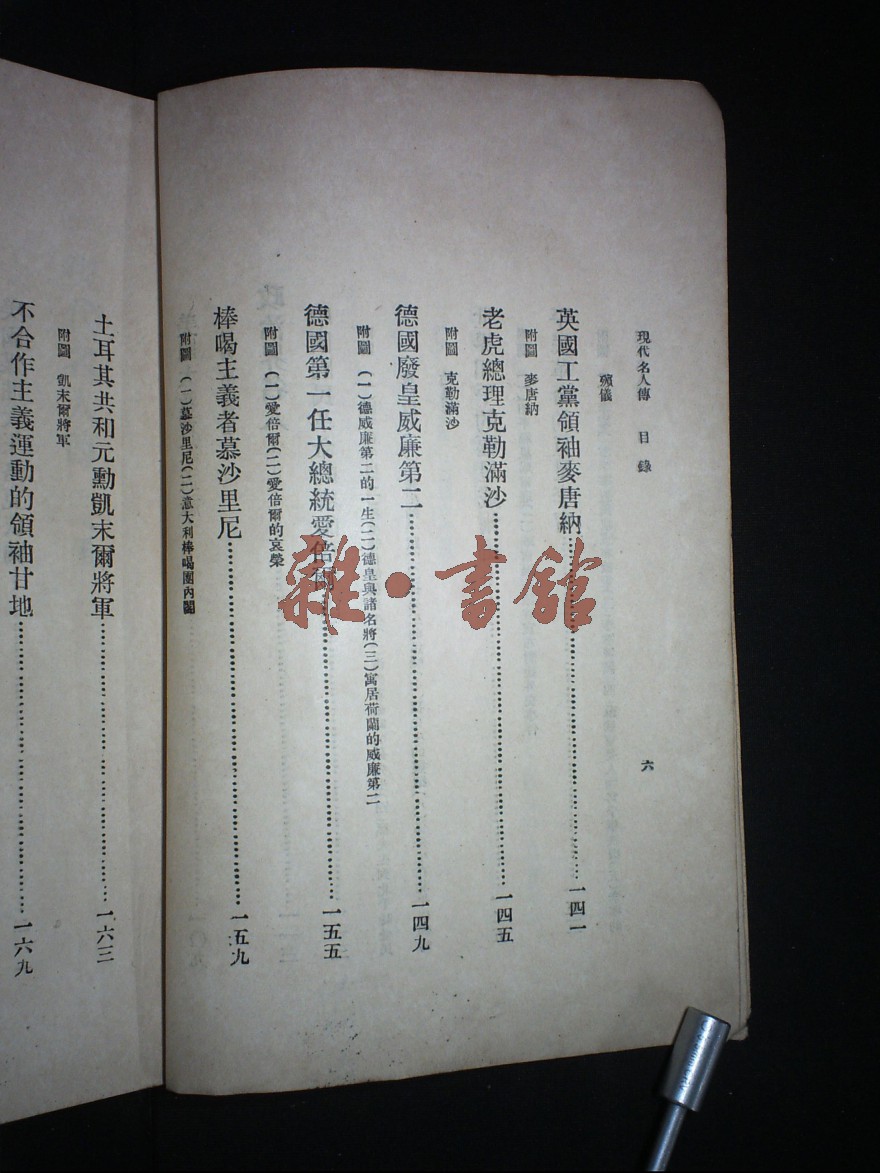 現代名人傳 目錄
六
頦儀
英國工黨領袖麥唐納……一四一
附圖 麥唐納
老虎總理克勒滿沙……一四五
附圖 克勒滿沙
德國廢皇威廉第二……一四九
附圖 (一)德威廉第二的一生(二)德皇與諸名將(三)寓居荷蘭的威廉第二
德國第一任大總統愛倍爾……一五五
附圖 (一)愛倍爾(二)愛倍爾的哀榮
棒喝主義者慕沙里尼……一五九
附圖 (一)慕沙里尼(二)意大利棒喝團內閣
土耳其共和元勳凱末爾將軍……一六三
附圖 凱末爾將軍
不合作主義運動的領袖甘地……一六九
雜·書館